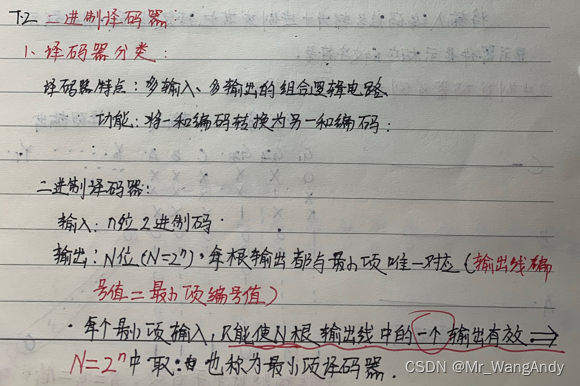 7.2 二进制译码器:
1、译码器分类:
译码器特点:多输入、多输出的组合逻辑电路
功能:将一种编码转换为另一种编码;
二进制译码器:
输入:n位2进制码.
输出:N位(N=2ⁿ),每根输出都与最小项唯一对应(输出线编
号值=最小项编号值)
·每个最小项输入,只能使N根输出线中的一个输出有效⇒
N=2ⁿ中取1;也称为最小项译码器.
CSDN @Mr_WangAndy